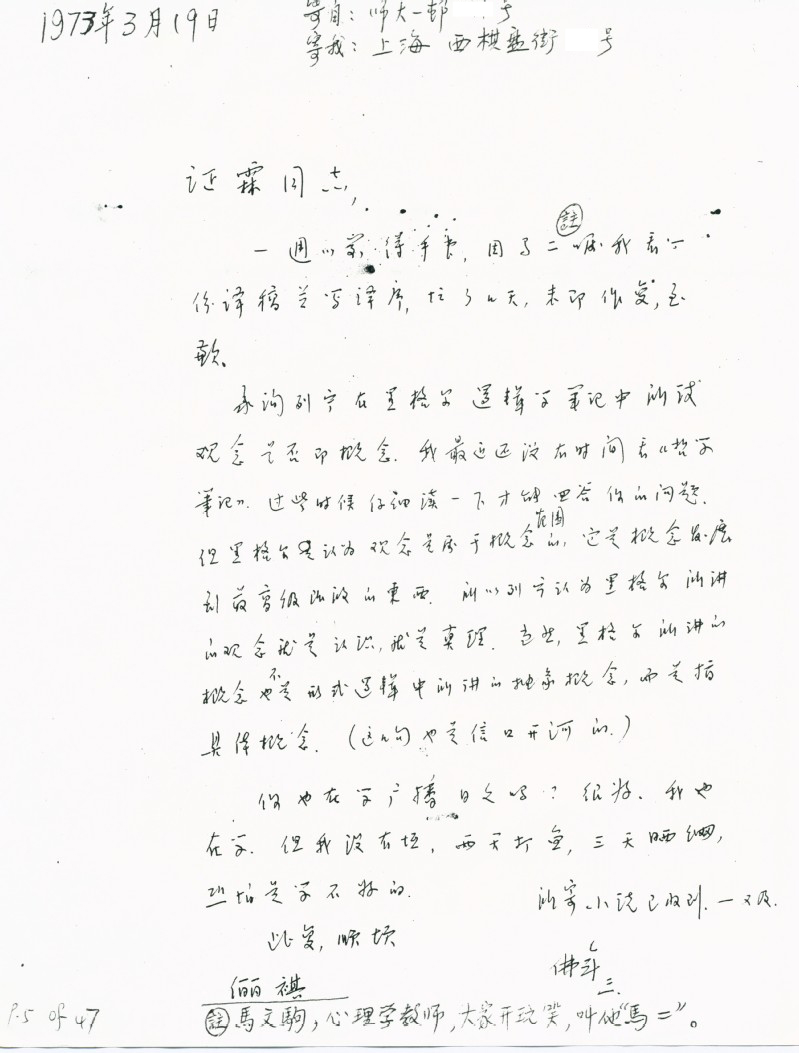 1973年3月19日
寄自: 师大一邨 号
寄我: 上海 西棋盘街 号
证霖同志,
一週以前得手书, 因马二(註)嘱我看一
份译稿并写译序, 忙了几天, 未即作复, 至
歉。
承询列宁在黑格尔逻辑学笔记中所谈
观念是否即概念. 我最近还没有时间看《哲学
笔记》. 过些时候仔细读一下才能回答你的问题.
但黑格尔是认为观念是属于概念范围的, 它是概念发展
到最高级阶段的东西. 所以列宁认为黑格尔所讲
的观念就是认识, 就是真理. 当然, 黑格尔所讲的
概念也不是形式逻辑中所讲的抽象概念, 而是指
具体概念. (这几句也是信口开河的.)
你也在学广播日文吗? 很好. 我也
在学. 但我没有恒, 两天打鱼, 三天晒网,
恐怕是学不好的.
所寄小说已收到. 一又及.
此复, 顺颂
俪祺
佛年
(註) 馬文駒, 心理学教师, 大家开玩笑, 叫他"馬二"。
P.5 of 47